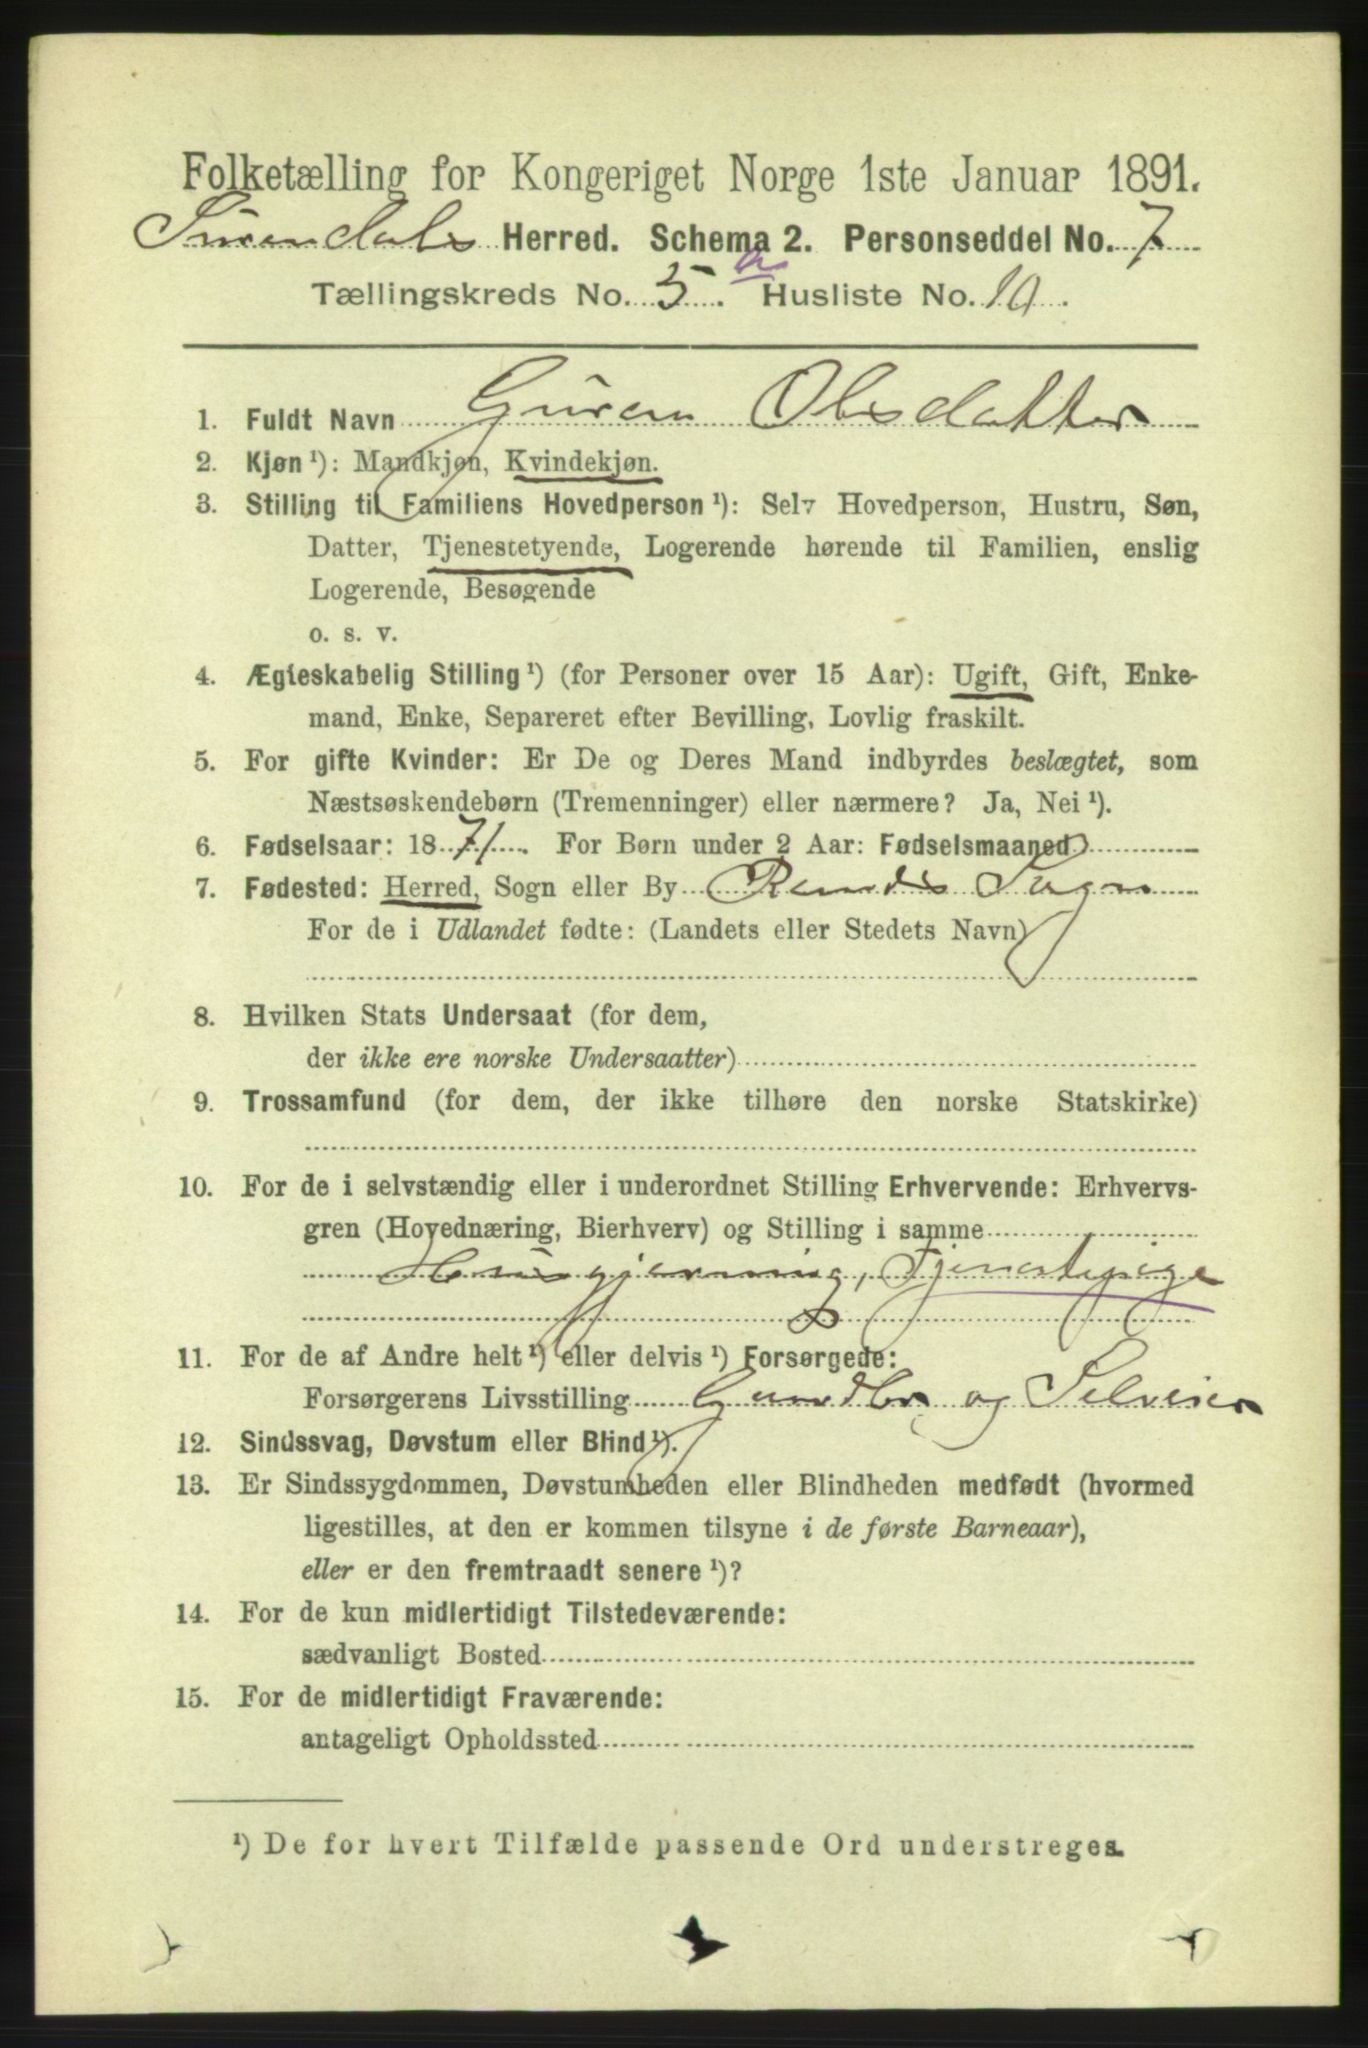 Folketælling for Kongeriget Norge 1ste Januar 1891.
Surendals Herred. Schema 2. Personseddel No. 7
Tællingskreds No. 5 a. Husliste No. 10.
1. Fuldt Navn Guren Olsdatter
2. Kjøn ¹): Mandkjøn, Kvindekjøn.
3. Stilling til Familiens Hovedperson ¹): Selv Hovedperson, Hustru, Søn,
Datter, Tjenestetyende, Logerende hørende til Familien, enslig
Logerende, Besøgende
o. s. v.
4. Ægteskabelig Stilling ¹) (for Personer over 15 Aar): Ugift, Gift, Enke-
mand, Enke, Separeret efter Bevilling, Lovlig fraskilt.
5. For gifte Kvinder: Er De og Deres Mand indbyrdes beslægtet, som
Næstsøskendebørn (Tremenninger) eller nærmere? Ja, Nei ¹).
6. Fødselsaar: 1871. For Børn under 2 Aar: Fødselsmaaned
7. Fødested: Herred, Sogn eller By Sogn
For de i Udlandet fødte: (Landets eller Stedets Navn)
8. Hvilken Stats Undersaat (for dem,
der ikke ere norske Undersaatter)
9. Trossamfund (for dem, der ikke tilhøre den norske Statskirke)
10. For de i selvstændig eller i underordnet Stilling Erhvervende: Erhvervs-
gren (Hovednæring, Bierhverv) og Stilling i samme
Husgjerning, Tjenestepige
11. For de af Andre helt ¹) eller delvis ¹) Forsørgede:
Forsørgerens Livsstilling Gaardbr. og Selveier
12. Sindssvag, Døvstum eller Blind ¹).
13. Er Sindssygdommen, Døvstumheden eller Blindheden medfødt (hvormed
ligestilles, at den er kommen tilsyne i de første Barneaar),
eller er den fremtraadt senere ¹)?
14. For de kun midlertidigt Tilstedeværende:
sædvanligt Bosted
15. For de midlertidigt Fraværende:
antageligt Opholdssted
¹) De for hvert Tilfælde passende Ord understreges.